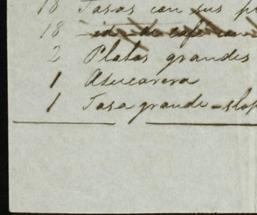 18 Tasas con sus
18 id de cafe con
2 Platos grandes
1 Asucarera
1 Tasa grande - slop